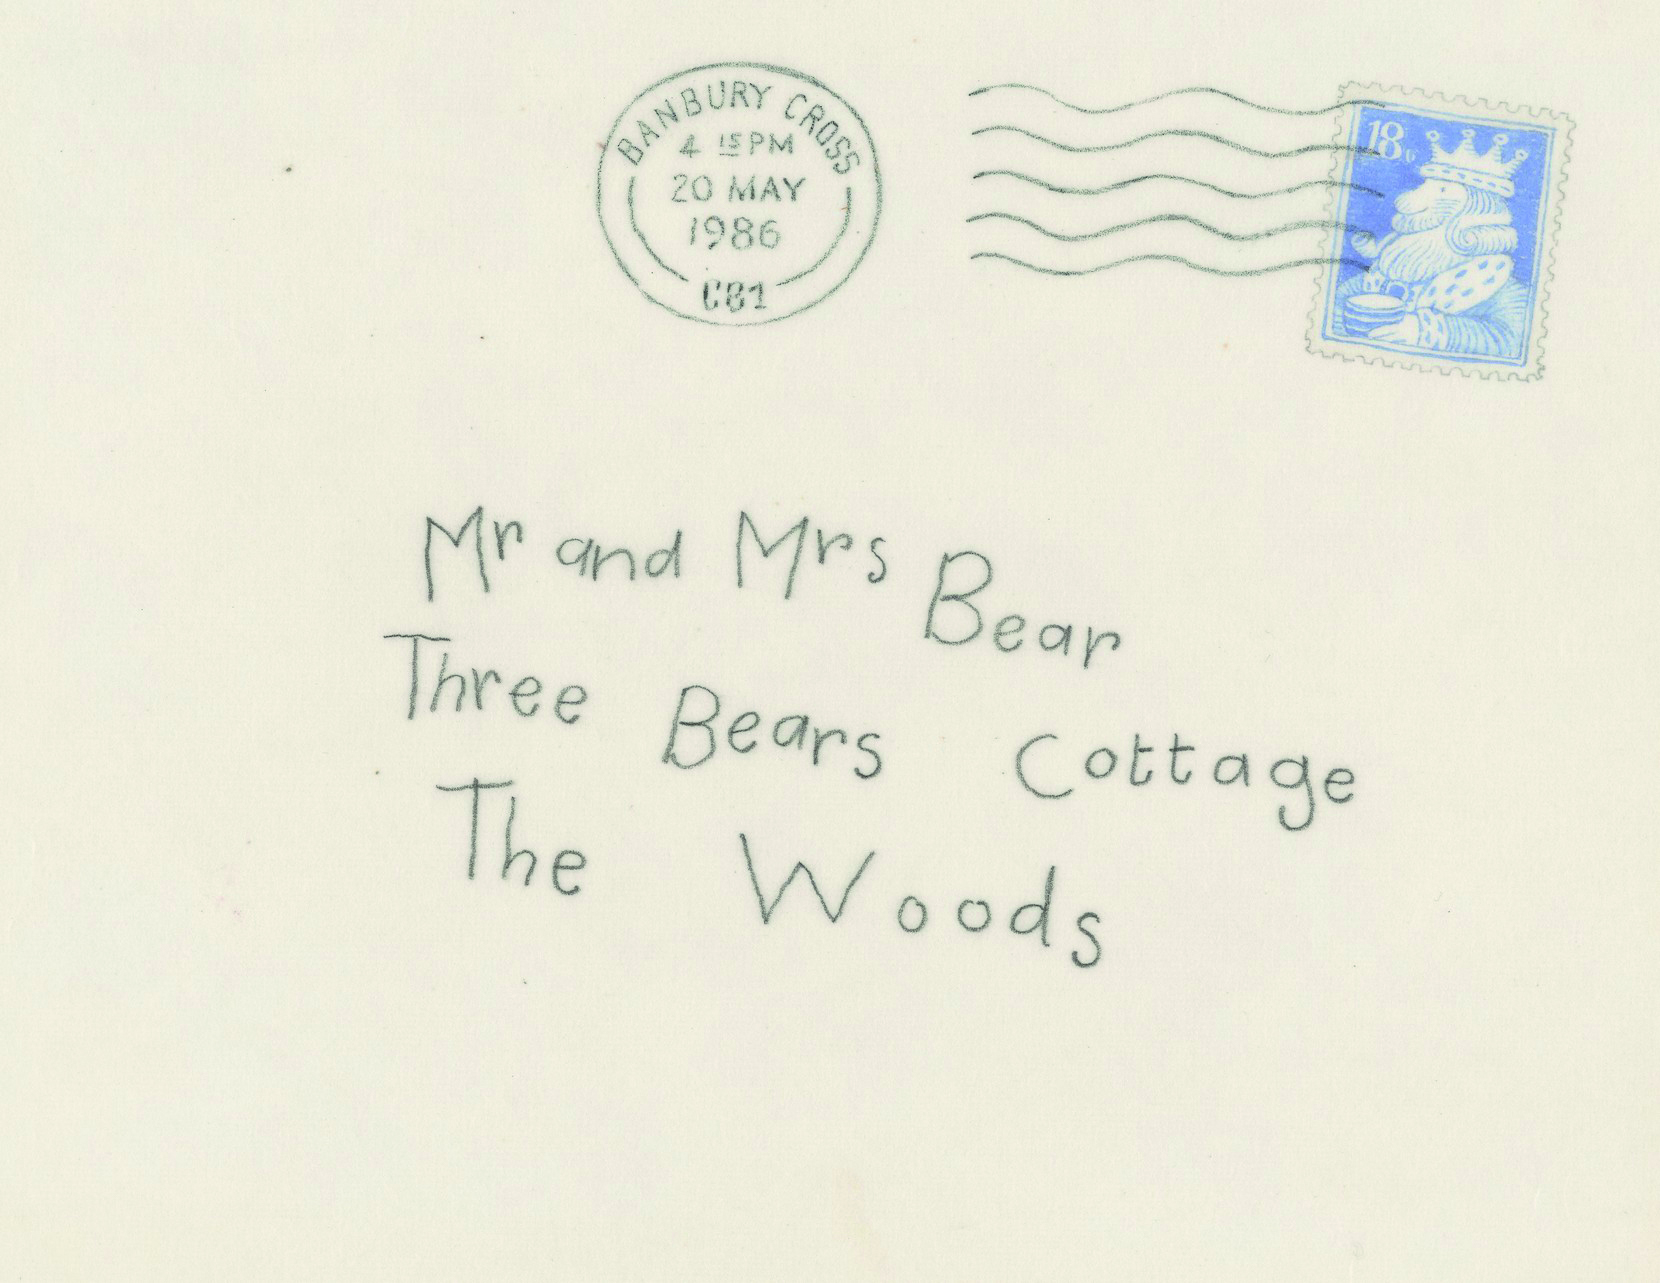 BANBURY CROSS
4 15 PM
20 MAY
1986
CB1
18
Mr and Mrs Bear
Three Bears Cottage
The Woods